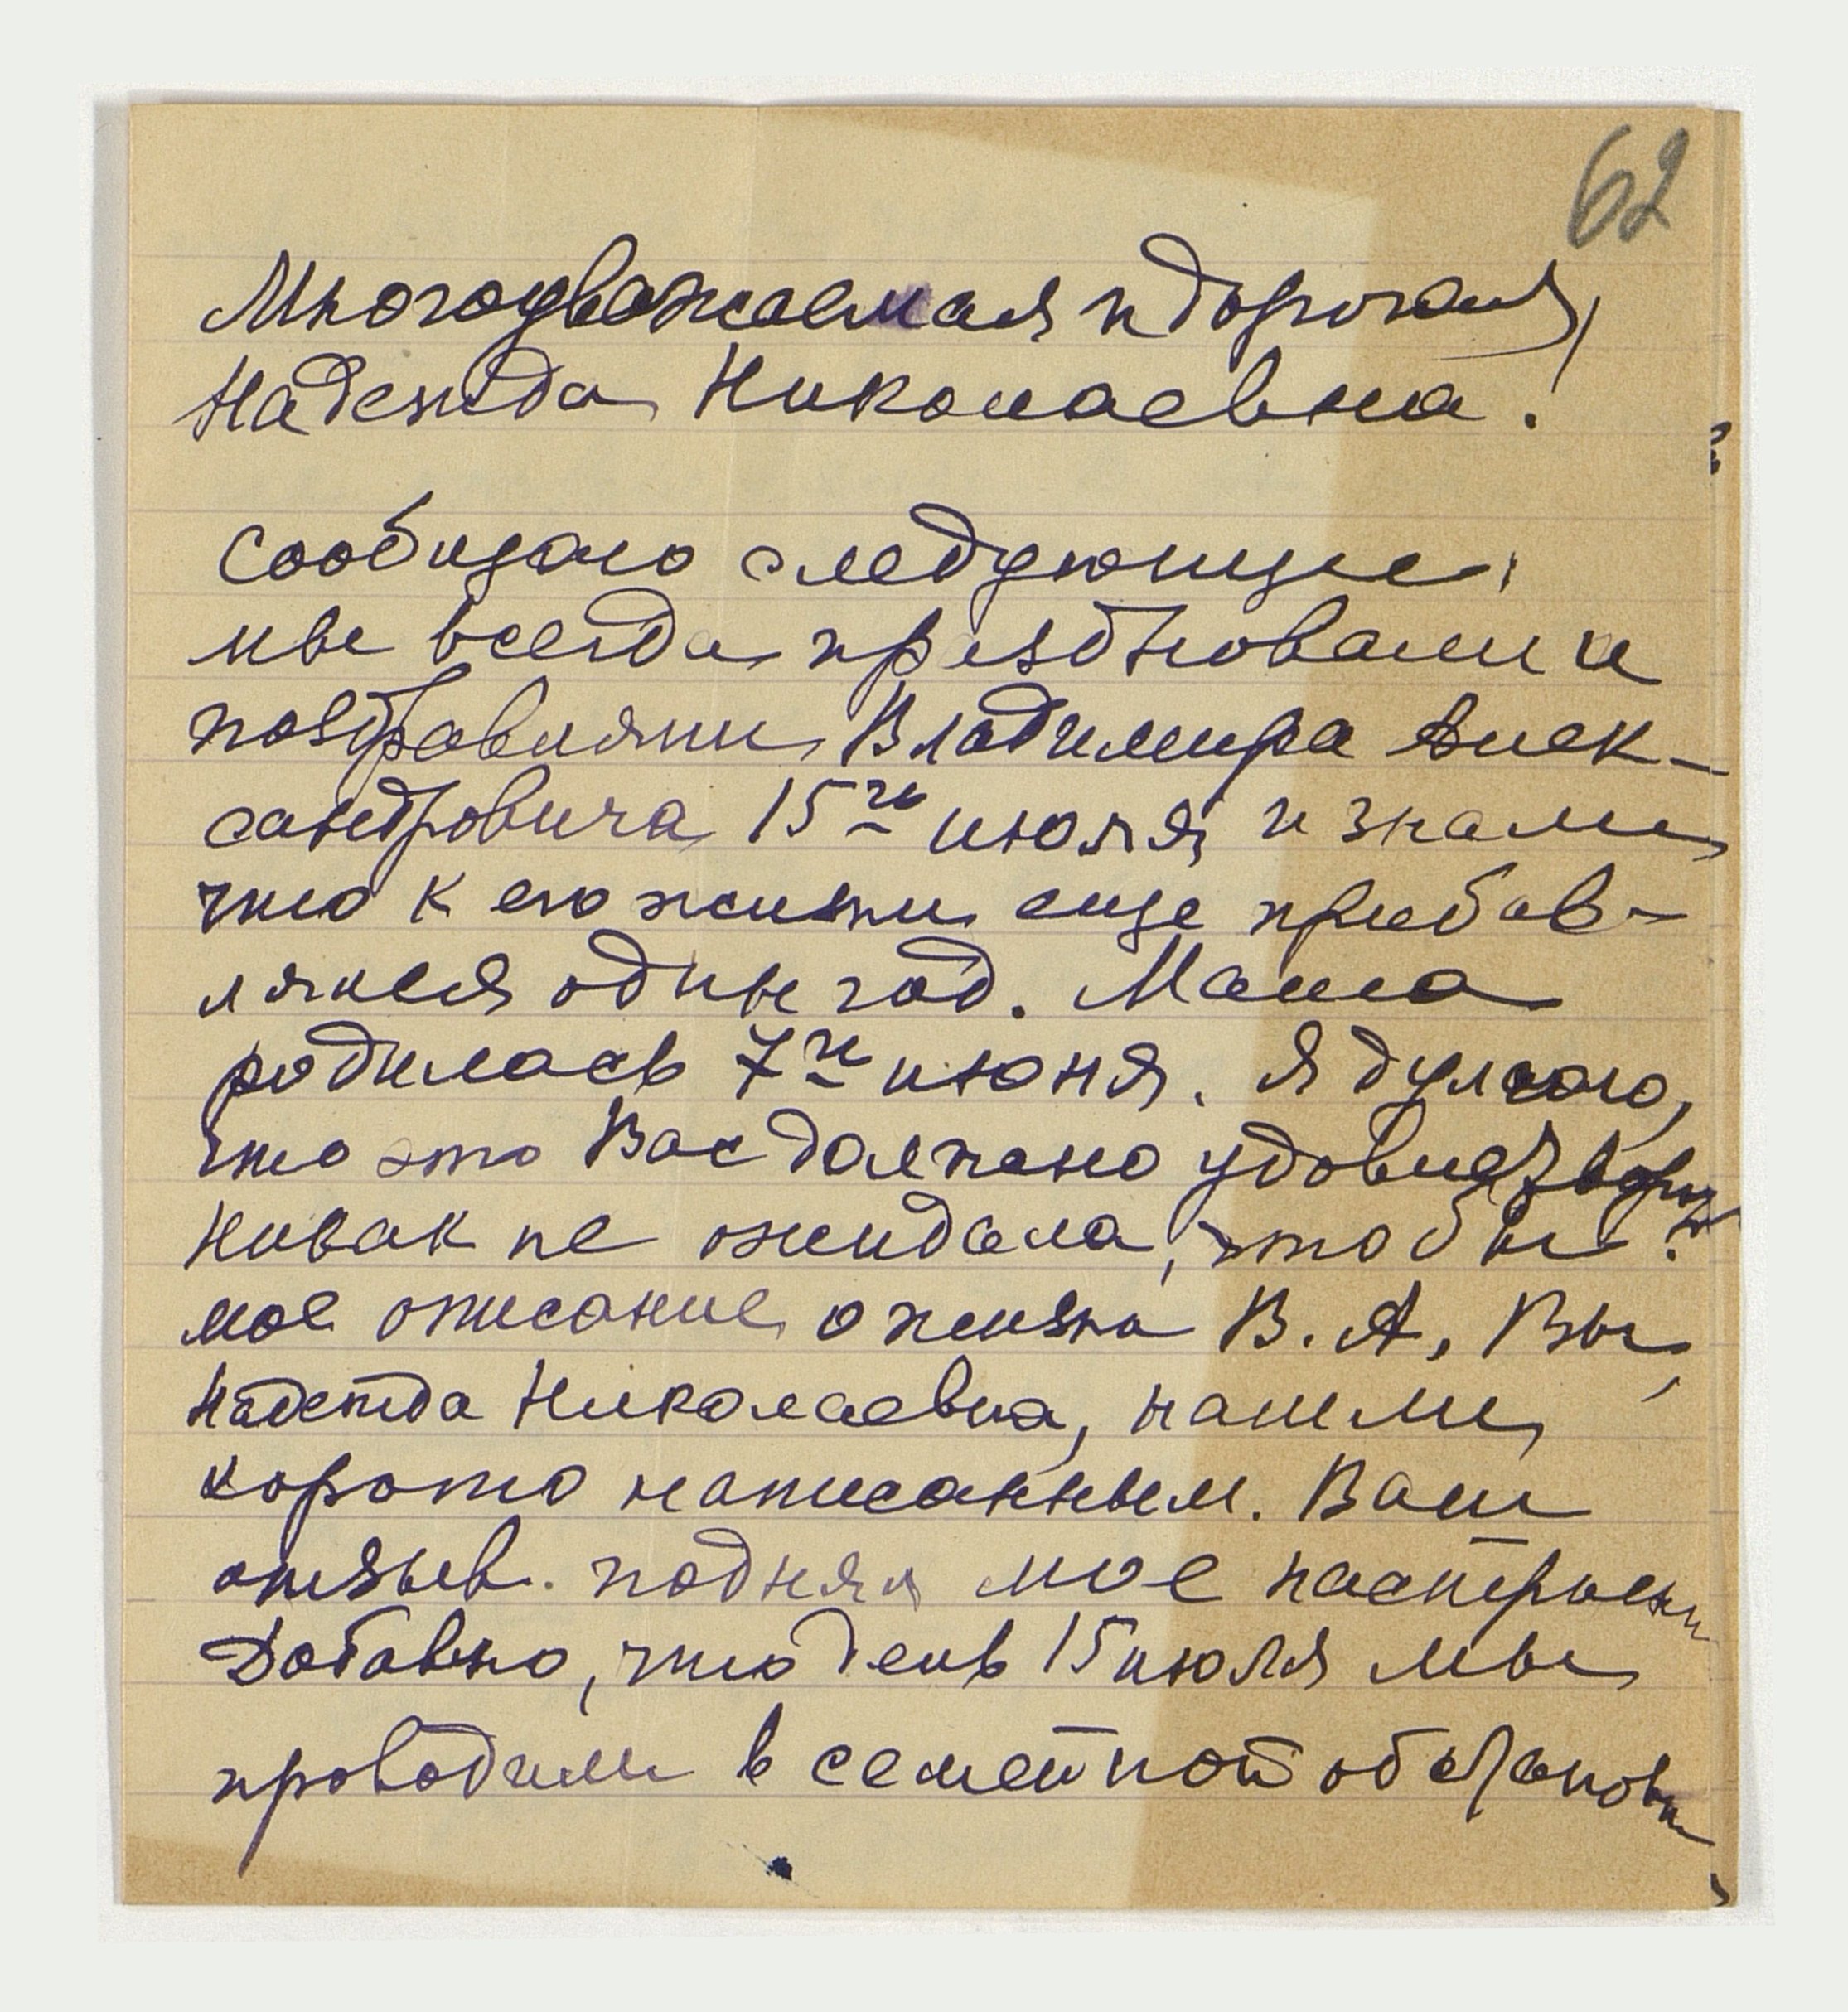 62
Многоуважаемая и дорогая,
Надежда Николаевна!
Сообщаю следующие:
мы всегда праздновали и
поздравляли Владимира Алек-
сандровича 15го июля, и знали,
что к его жизни еще прибав-
лялся один год. Маша
родилась 7го июня. Я думаю,
что это Вас должно удовлетворить.
Никак не ожидала, чтобы
мое описание о жизни В. А, Вы,
Надежда Николаевна, нашли,
хорошо написанным. Ваш
отзыв поднял мое настроени
Добавлю, что день 15 июля мы
проводили в семейной обстановк